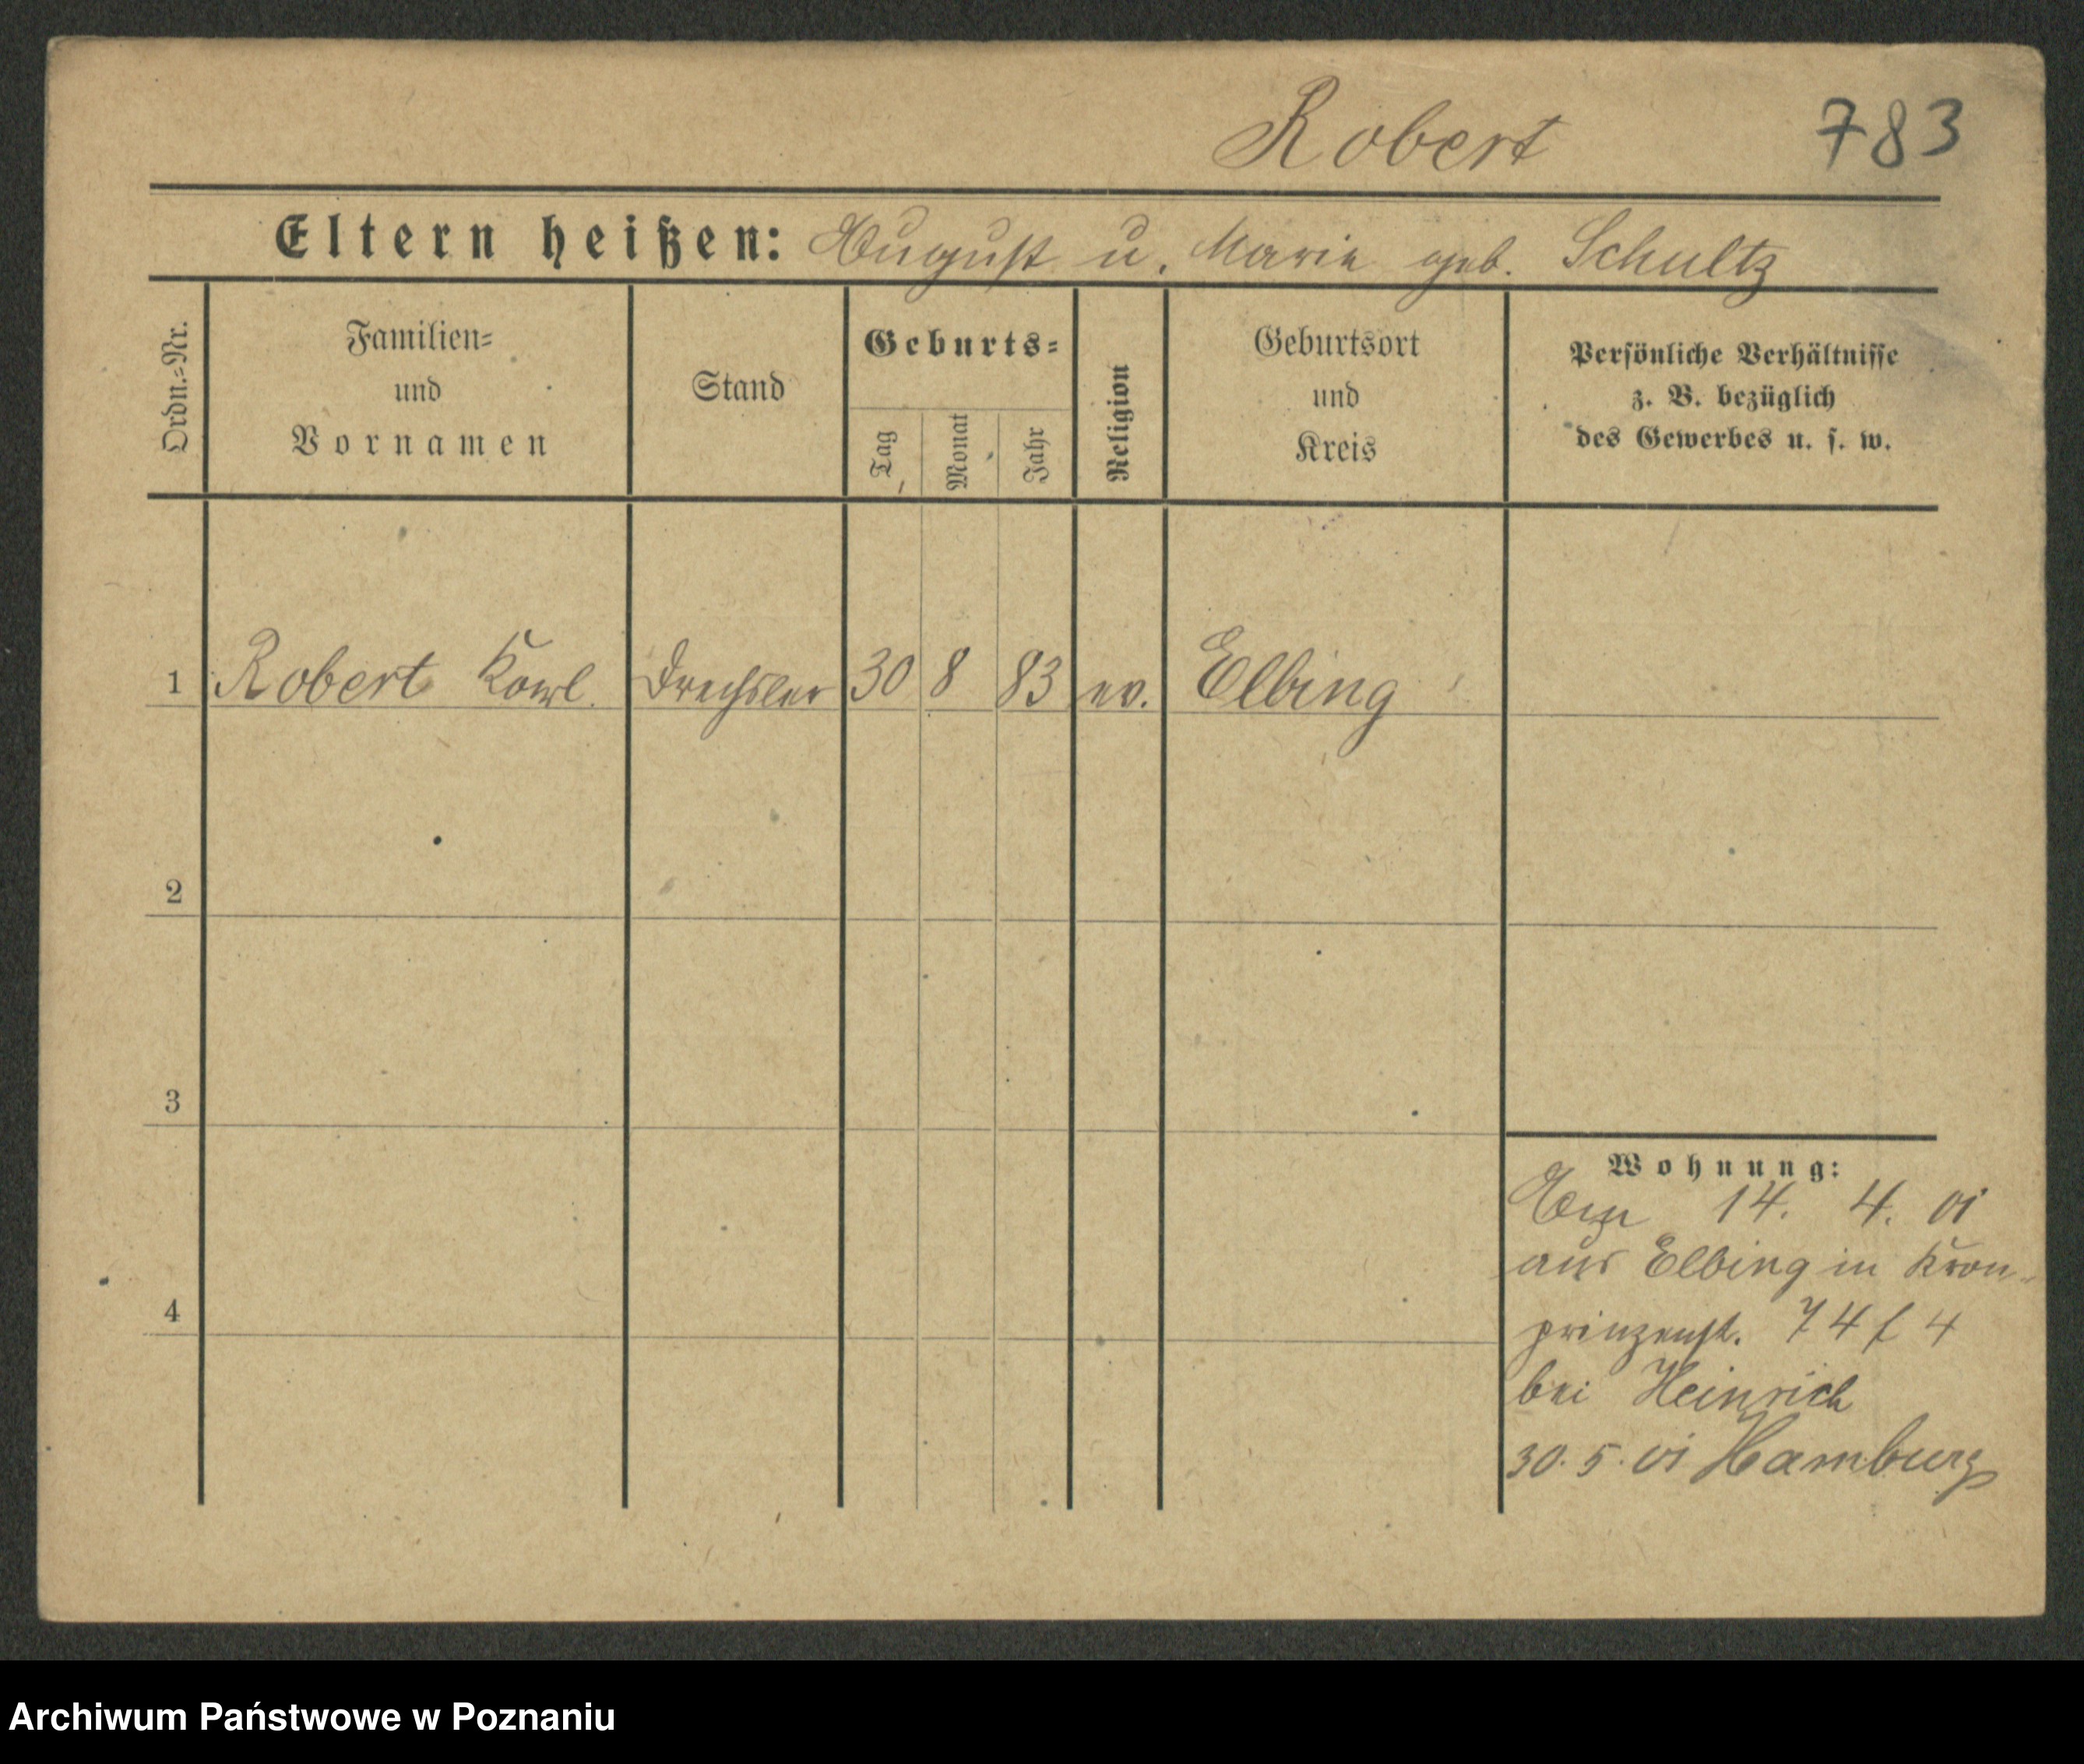 Robert 783
Eltern heißen: August u. Marie geb. Schultz
Ordn.-Nr.
Familien-
und
Vornamen
Stand
Geburts-
Tag
Monat
Jahr
Religion
Geburtsort
und
Kreis
Persönliche Verhältnisse
z. B. bezüglich
des Gewerbes u. s. w.
1 Robert Karl. Drechsler 30 8 83 ev. Elbing
2
3
4
Wohnung:
14. 4. 01
aus Elbing in Kron-
prinzenst. 74 f 4
bei Heinrich
30. 5. 01 Hamburg
Archiwum Państwowe w Poznaniu